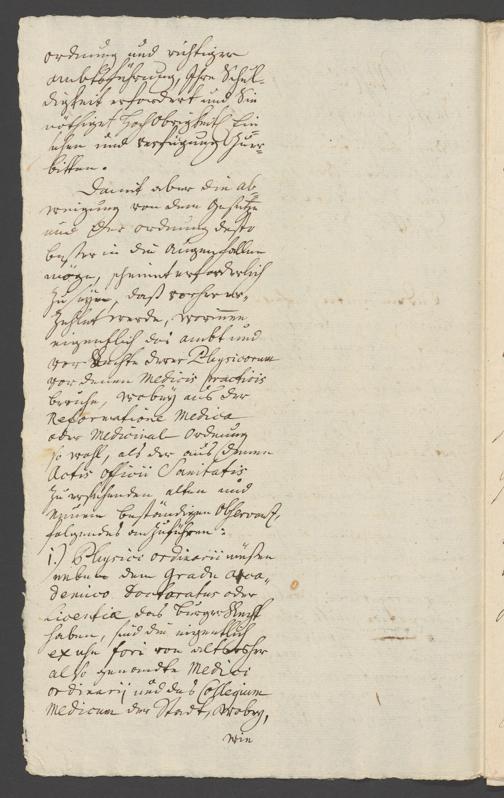 ordnung und richtiger
ambtsführung, Ihre Schul-
digkeit erfordert und Sie
nöthiget Hoch Obrigkeitl. Ein
sehen und verfügung Zuer-
bitten.
Damit aber die ab
weigung von dem Gesetze
und der ordnung desto
besser in die Augen fallen
möge, scheinet erforderlich
Zu seyn, daß vorher er-
Zehlet werde, worinnen
eigentlich das ambt und
vor Rechte derer Physicorum
vor denen Medicis practicis
beruhe, wobey aus der
Reformatione Medica
oder Medicinal Ordnung
so wohl, als der aus denen
Actis officii Sanitatis
Zu ersehenden, alten und
neuern beständigen Observantz,
folgendes anzuführen:
1.) Physici ordinarii müßen
neben dem Gradu Aca-
demico Doctoratus oder
Licentiæ das Burger Recht
haben, sind die eigentlich
ex usu fori von altersher
also genandte Medici
ordinarij und das Collegium
Medicum der Stadt, wobey,
wie